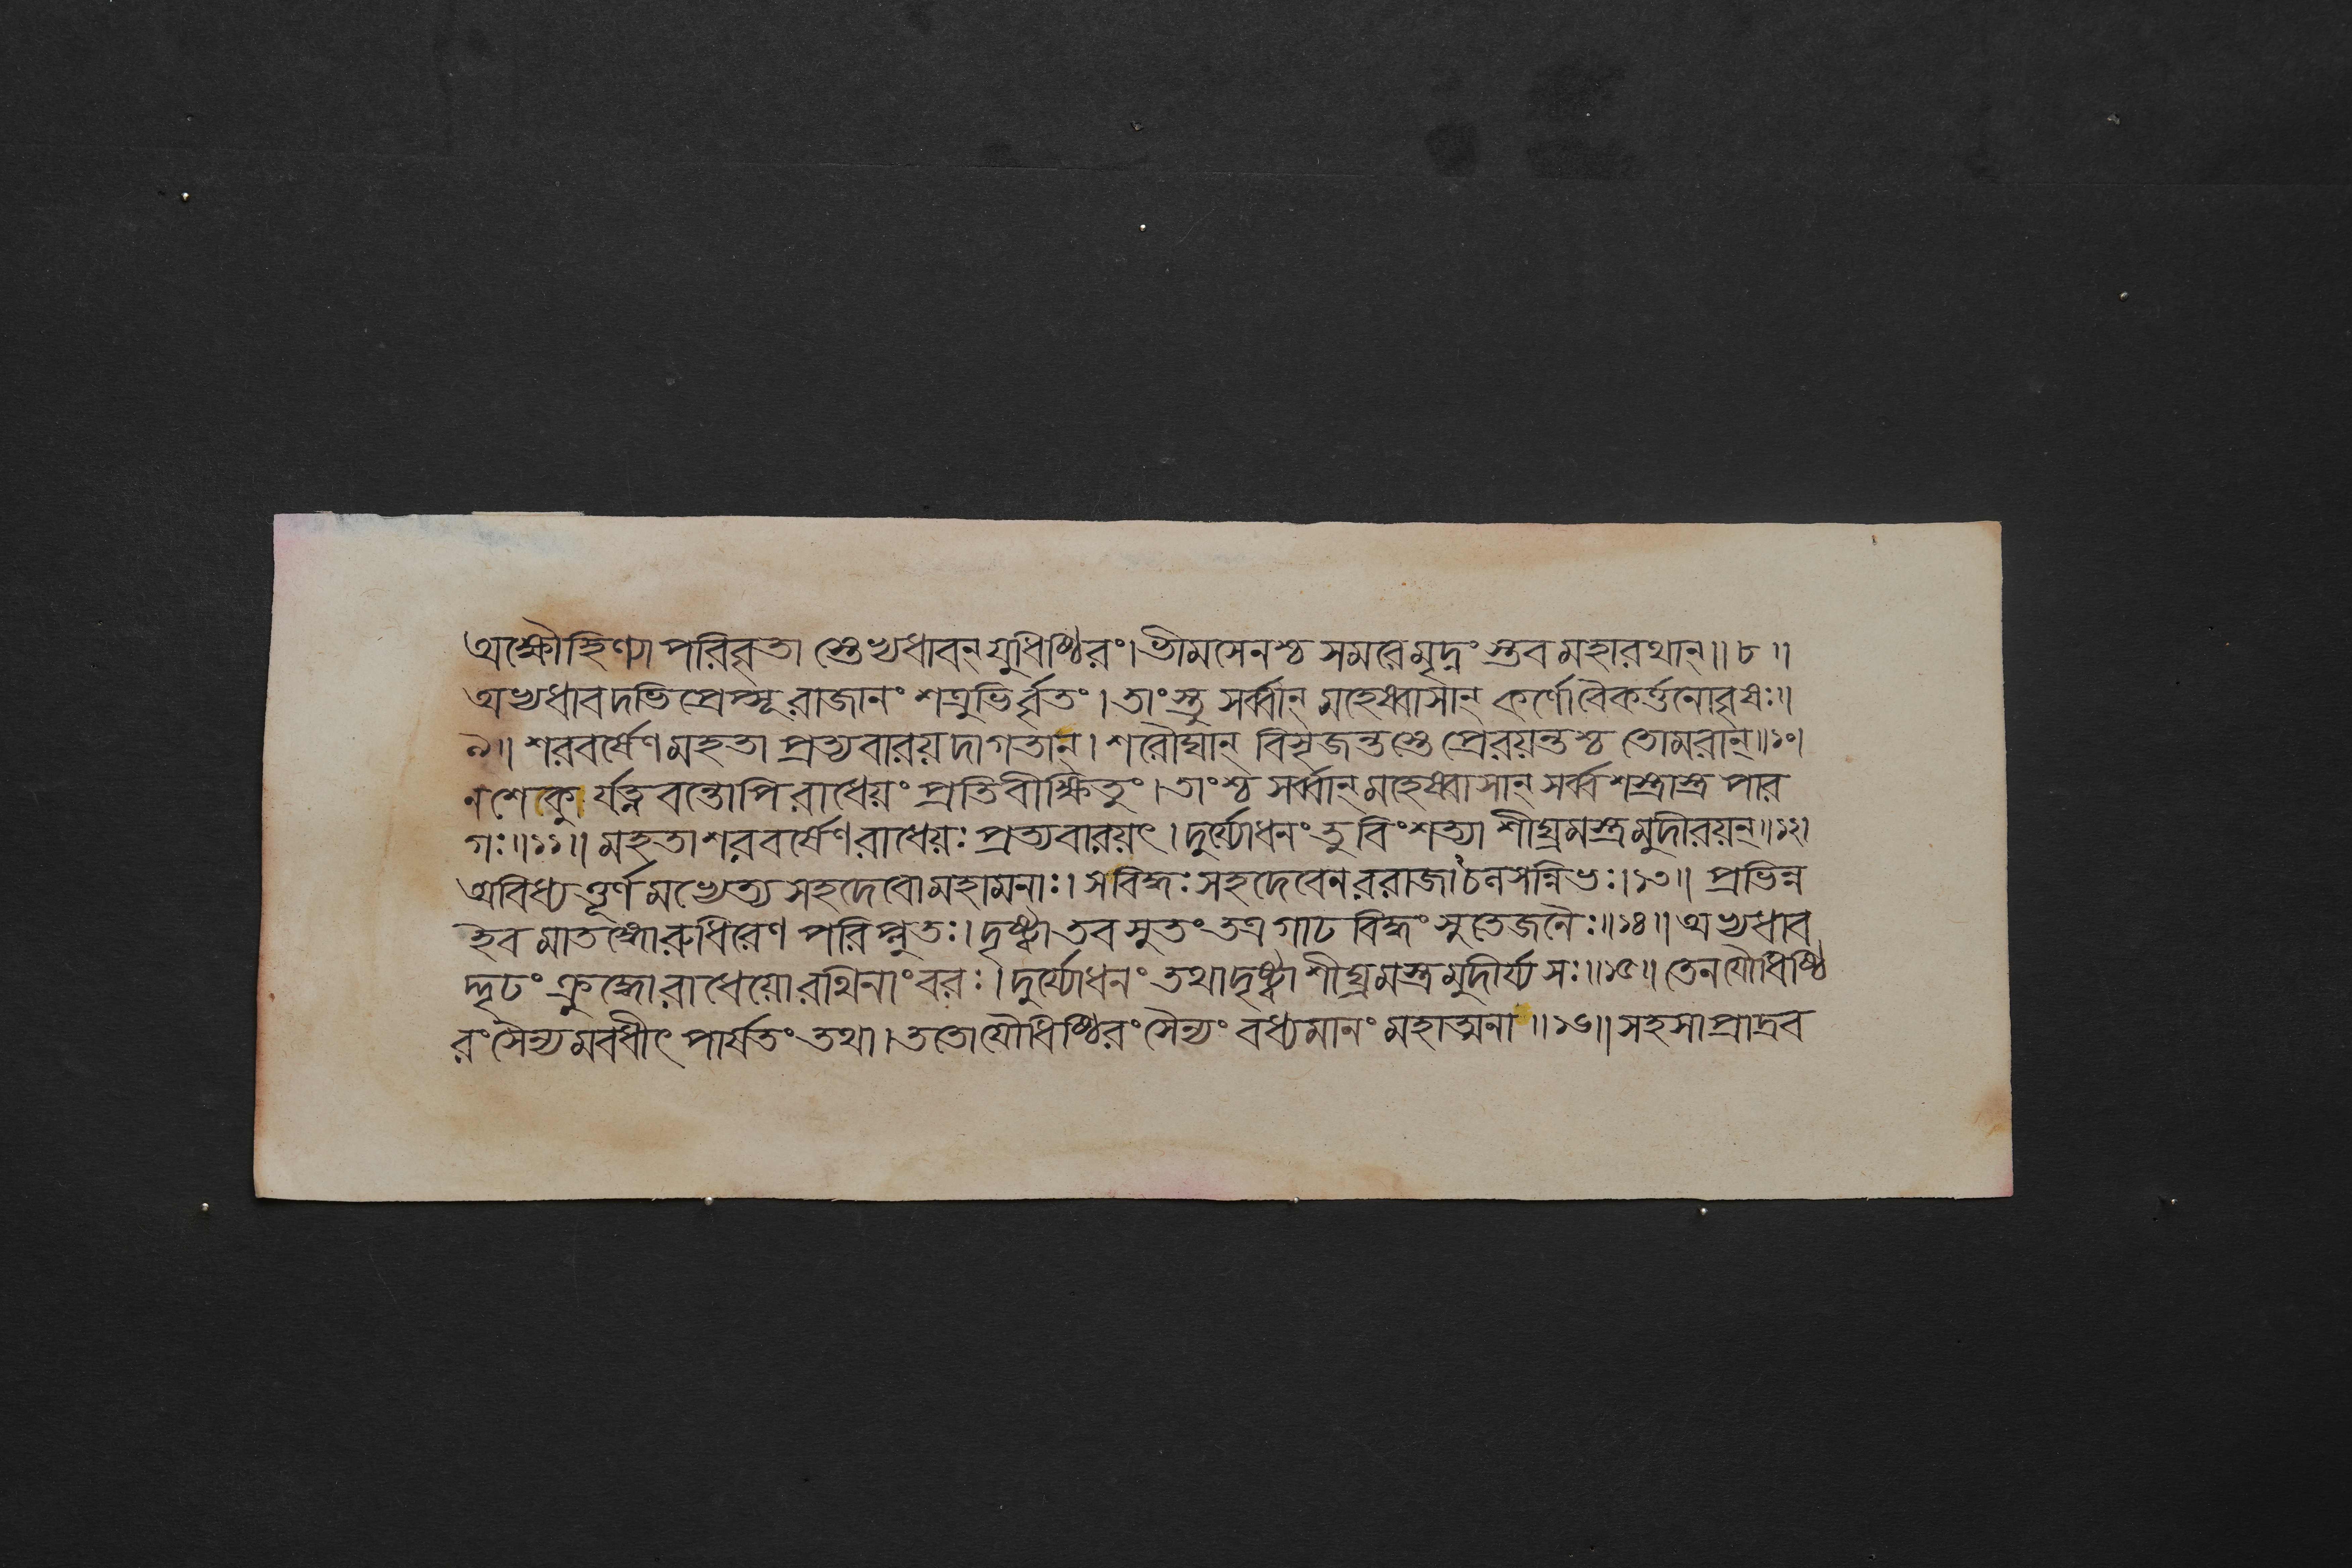 অক্ষৌহিণ্যা পরিবৃতা স্তেভ্যধাবন্ যুধিষ্ঠিরং। ভীমসেনশ্চ সমরেমৃদ্নং স্তব মহারথান্॥ ৮ ॥
অভ্যধাবদভিপ্রেপ্সূ রাজানং শত্রুভির্ব্বৃতং। তাংস্তু সর্ব্বান্ মহেষ্বাসান্ কর্ণোবৈকর্ত্তনোবৃষঃ॥
৯॥ শরবর্ষেণ মহতা প্রত্যবারয়দাগতান্। শরৌঘান্ বিসৃজন্তস্তে প্রেরয়ন্তশ্চ তোমরান্॥১০।
নশেকু র্যত্নবন্তোপি রাধেয়ং প্রতিবীক্ষিতুং। তাংশ্চ সর্ব্বান্ মহেষ্বাসান্ সর্ব্বশস্ত্রাস্ত্র পার
গঃ॥১১॥ মহতাশরবর্ষেণ রাধেয়ঃ প্রত্যবারয়ৎ। দুর্য্যোধনং তু বিংশত্যা শীঘ্রমস্ত্রমুদীরয়ন্॥১২।
অবিধ্যত্তূর্ণমভ্যেত্য সহদেবো মহামনাঃ। সবিদ্ধঃ সহদেবেন ররাজাচলসন্নিভঃ।১৩॥ প্রভিন্ন
ইব মাতঙ্গোরুধিরেণ পরিপ্লুতঃ। দৃষ্ট্বা তব সুতং তত্র গাঢ বিদ্ধং সুতেজনৈঃ॥১৪॥ অভ্যধাব
দ্দৃঢং ক্রুদ্ধোরাধেয়োরথিনাং বরঃ। দুর্য্যোধনং তথাদৃষ্ট্বা শীঘ্রমস্ত্রমুদীর্য্য সঃ॥১৫॥ তেন যৌধিষ্ঠি
রং সৈন্যমবধীৎ পার্ষতং তথা। ততোযৌধিষ্ঠিরং সৈন্যং বধ্যমানং মহাত্মনা ॥১৬॥ সহসা প্রাদ্রব